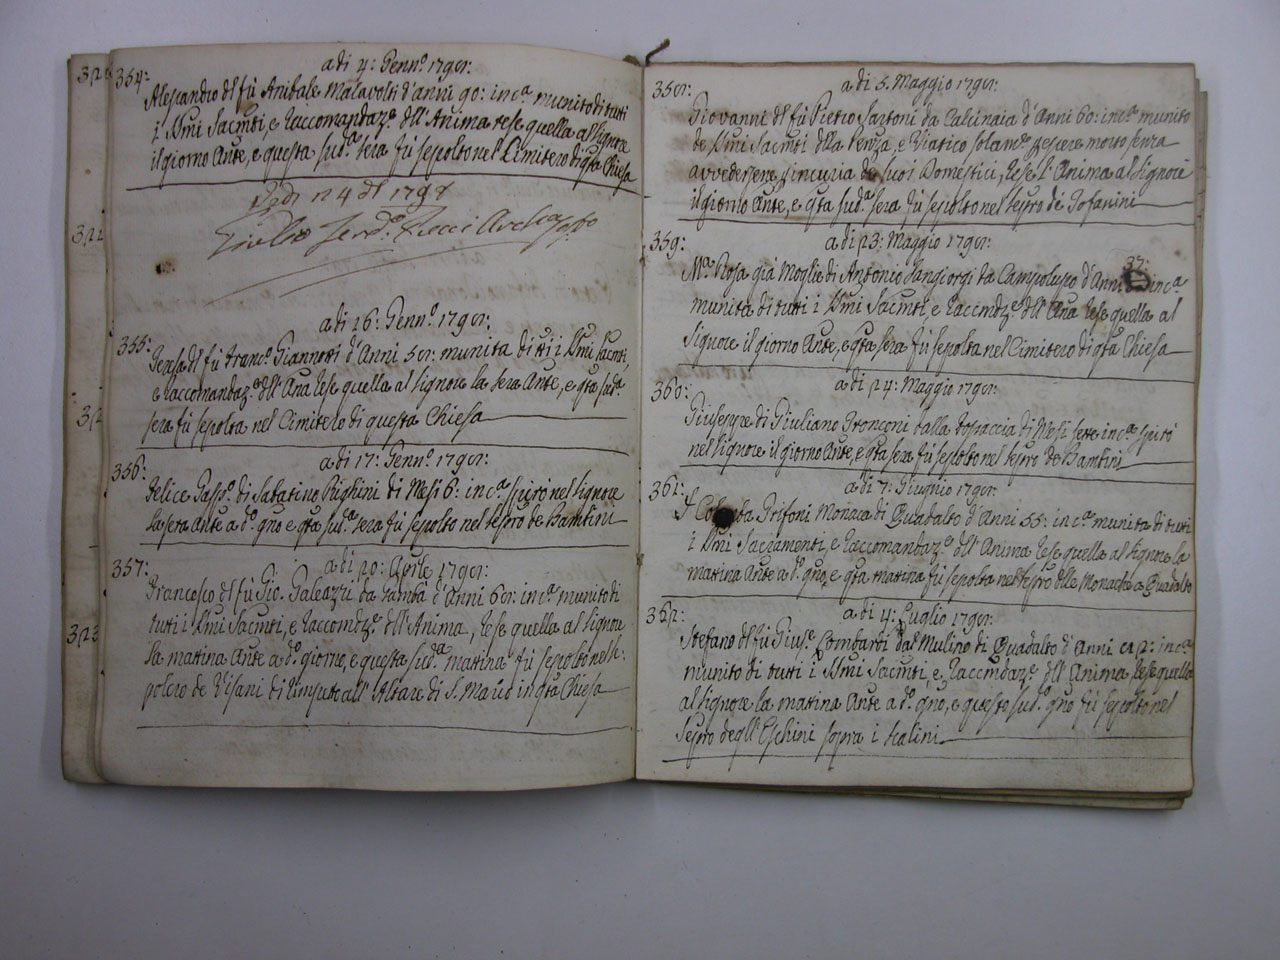 354:
a di 4: Genn.o 1798:
Alessandro del fù Anibale Malavolti d'anni 90: inc.a munito di tutti
i SSmi Sacmti, e Raccomandaz.e dell'Anima rese quella al Signore
il giorno Ante, e questa sud.a sera fù sepolto nel Cimitero di qta Chiesa
n 4 dl 1798
355:
a di 16: Genn.o 1798:
Teresa dl fù Franc.o Giannotti d'Anni 58: munita di tti i SSmi Sacmti,
e Raccomandaz.e dell'Ana rese quella al Signore la sera Ante, e qta sud.a
sera fù sepolta nel Cimitero di questa Chiesa
356:
a di 17: Genn.o 1798:
Felice Gasp.o di Sabatino Righini di Mesi 6: inc.a spirò nel Signore
la sera Ante a d.o gno e qta sud.a sera fù sepolto nel sepro de Bambini
357:
a di 20: Aprile 1798:
Francesco dl fù Gio. Galeazzi da Gamba d'Anni 68: inc.a munito di
tutti i SSmi Sacmti, e Raccomdz.e dell'Anima, rese quella al Signore
la mattina Ante a d.o giorno, e questa sud.a mattina fù sepolto nel se:
polcro de Pisani di rimpetto all'Altare di S. Marco in qta Chiesa
358:
a di 5. Maggio 1798:
Giovanni dl fù Pietro Sartoni da Calcinaia d'Anni 60: inc.a munito
de SSmi Sacmti della Penza, e Viatico solam.e p essere morto senza
avvedersene p incuria de suoi Domestici, rese l'Anima al Signore
il giorno Ante, e qta sud.a sera fù sepolto nel sepro de Tofanini
359:
a di 23: Maggio 1798:
M.a Rosa già Moglie di Antonio Sangiorgi da Campolupo d'Anni 37: inc.a
munita di tutti i SSmi Sacmti, e Raccmdz.e dell'Ana rese quella al
Signore il giorno Ante, e qta sera fù sepolta nel Cimitero di qta Chiesa
360:
a di 24: Maggio 1798:
Giuseppe di Giuliano Tronconi dalla Fornaccia di Mesi sette inc.a spirò
nel Signore il giorno Ante, e qta sera fù sepolto nel sepro de Bambini
361:
a di 7: Giugno 1798:
S. Colomba Grifoni Monaca di Quadalto d'Anni 55: inc.a munita di tutti
i SSmi Sacramenti, e Raccomandaz.e dell'Anima rese quella al Signore la
mattina Ante a d.o gno, e qta mattina fù sepolta nel sepro delle Monache a Quadalto
362:
a di 4: Luglio 1798:
Stefano dl fù Gius.e Lombardi dal Mulino di Quadalto d'Anni 82: inc.a
munito di tutti i SSmi Sacmti, e Raccmdaz.e dell'Anima rese quella
al Signore la mattina Ante a d.o gno, e questo sud.o gno fù sepolto nel
sepro degl'Eschini sopra i scalini